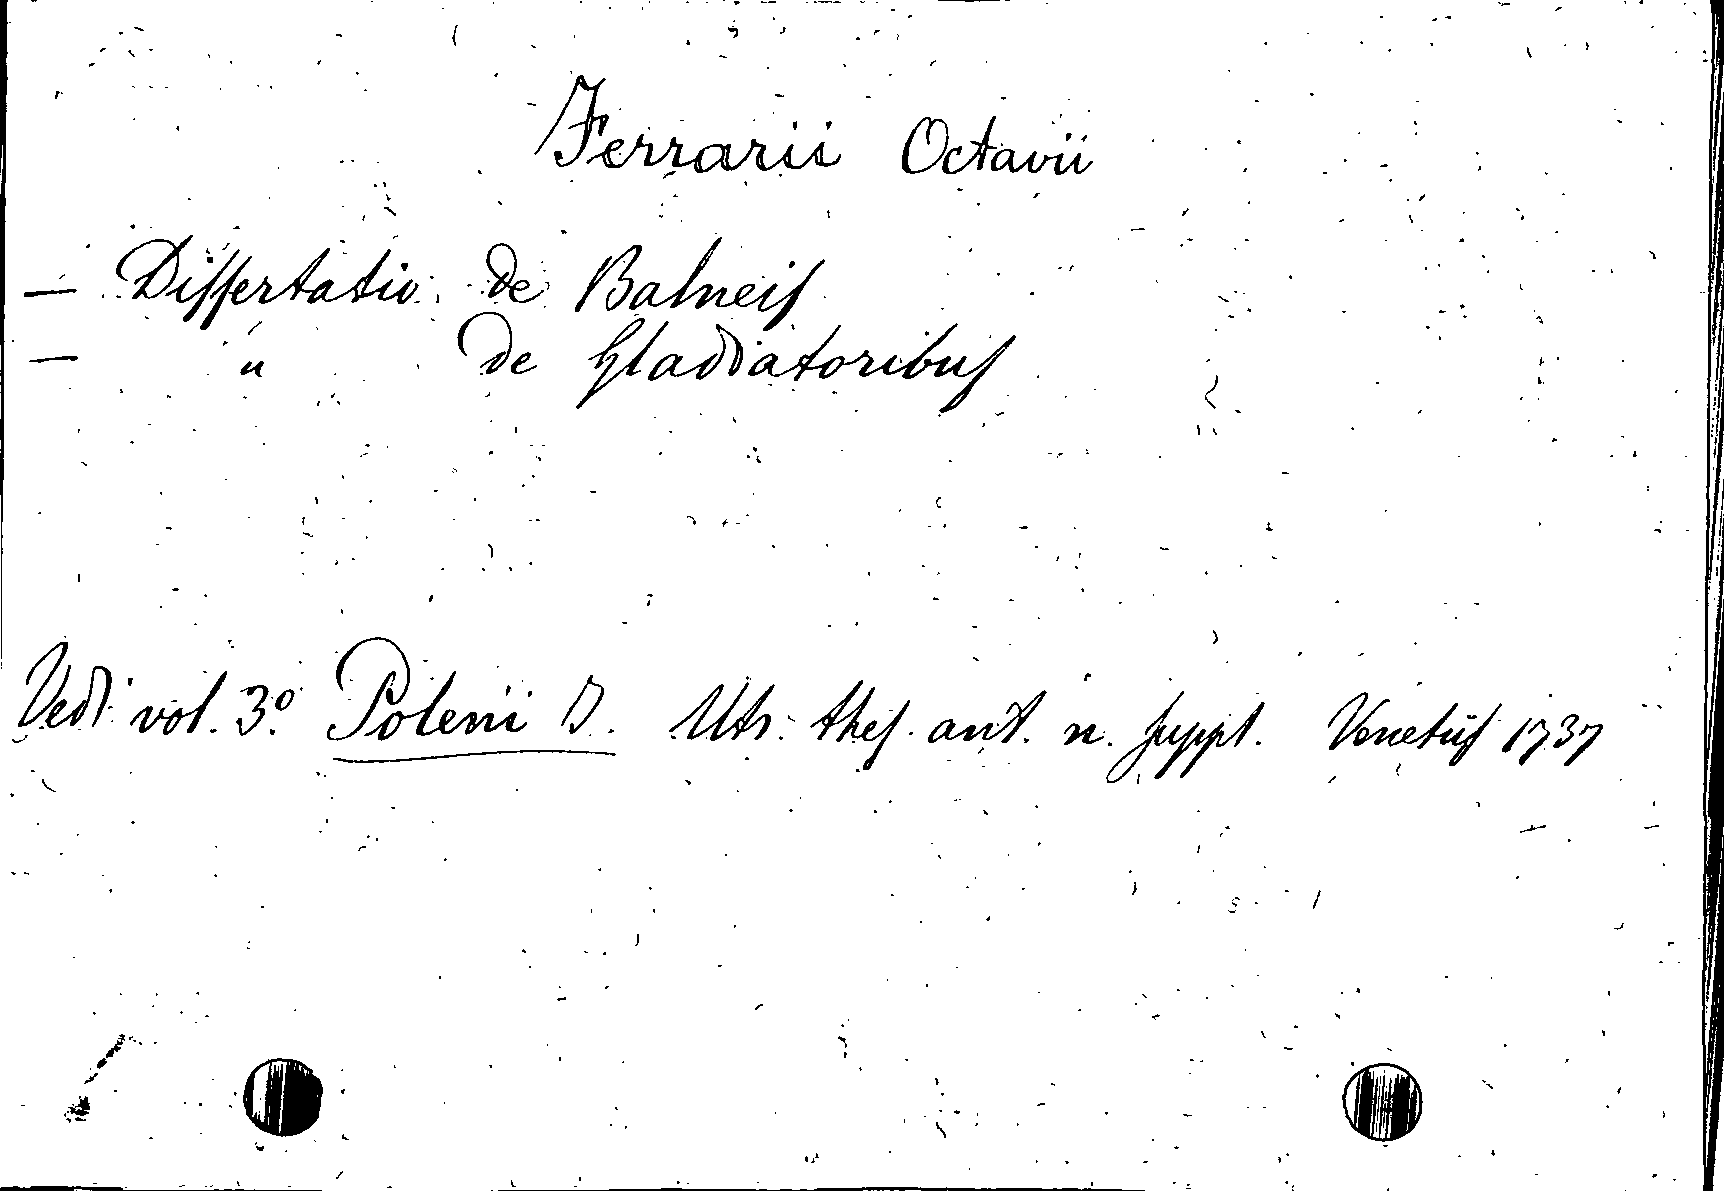 Ferrarii Octavii
— Dissertatio de Balneis
— " de Gladiatoribus
Vedi vol. 3º Poleni J. Utr. thes. ant. n. suppl. Venetiis 1737